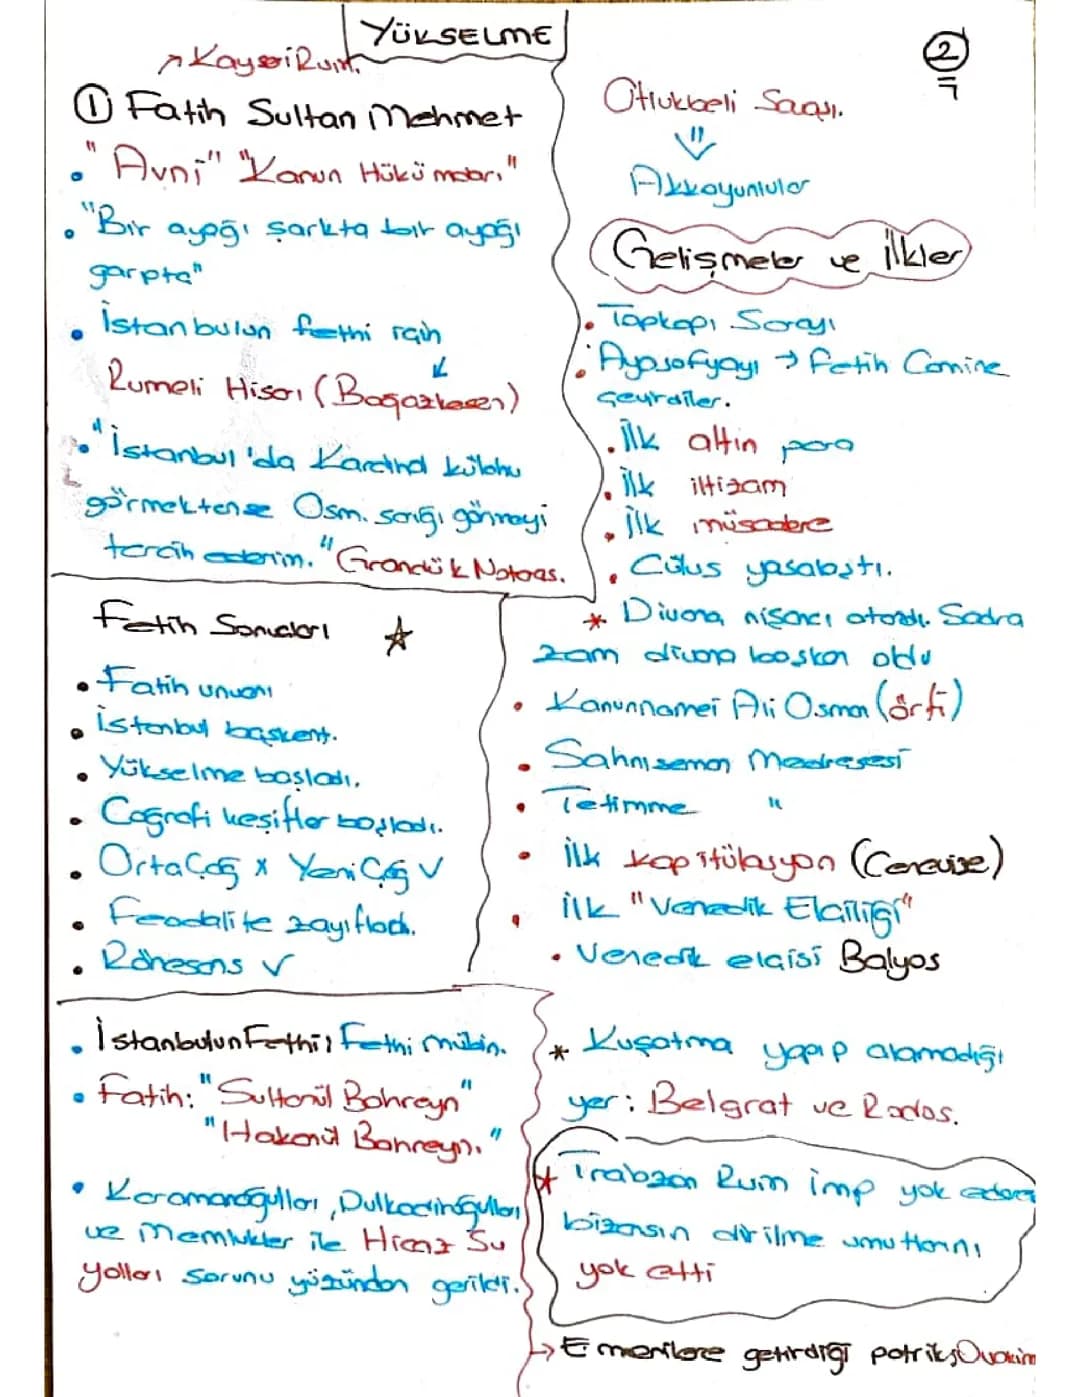 YÜKSELME
2
↗ Kayseri Rum.
① Fatih Sultan Mehmet
• "Avni" "Kanun Hükümdarı"
• "Bir ayağı şarkta bir ayağı
garpta"
• İstanbulun fethi için
↙
Rumeli Hisarı (Boğazkesen)
• "İstanbul'da Kardinal külahı
görmektense Osm. sarığı görmeyi
tercih ederim." Grandük Notaas.
Fetih Sonuçları ☆
• Fatih unvanı
• İstanbul başkent.
• Yükselme başladı.
• Coğrafi keşifler başladı.
• Orta Çağ x Yeni Çağ ✓
• Feodalite zayıfladı.
• Rönesans ✓
• İstanbulun Fethi: Fethi mübin.
• Fatih: "Sultanül Bahreyn"
"Hakanül Bahreyn."
• Karamanoğulları, Dulkadiroğulları
ve Memlükler ile Hicaz Su
yolları sorunu yüzünden gerildi.
Otlukbeli Savaşı.
⇓
Akkoyunlular
Gelişmeler ve İlkler
• Topkapı Sarayı
• Ayasofyayı → Fetih Camine
çevirdiler.
• İlk altın para
• İlk iltizam
• İlk müsadere
• Cülus yasalaştı.
* Divana nişancı atandı. Sadra
zam divana başkan oldu
• Kanunnamei Ali Osman (örfi)
• Sahnıseman Medresesi
• Tetimme "
• İlk kapitülasyon (Cenevize)
• İlk "Venedik Elçiliği"
• Venedik elçisi Balyos
* Kuşatma yapıp alamadığı
yer: Belgrat ve Rodos.
* Trabzon Rum imp yok ederek
bizansın dirilme umutlarını
yok etti
→ Ermenilere getirdiği patrik; Ovakim